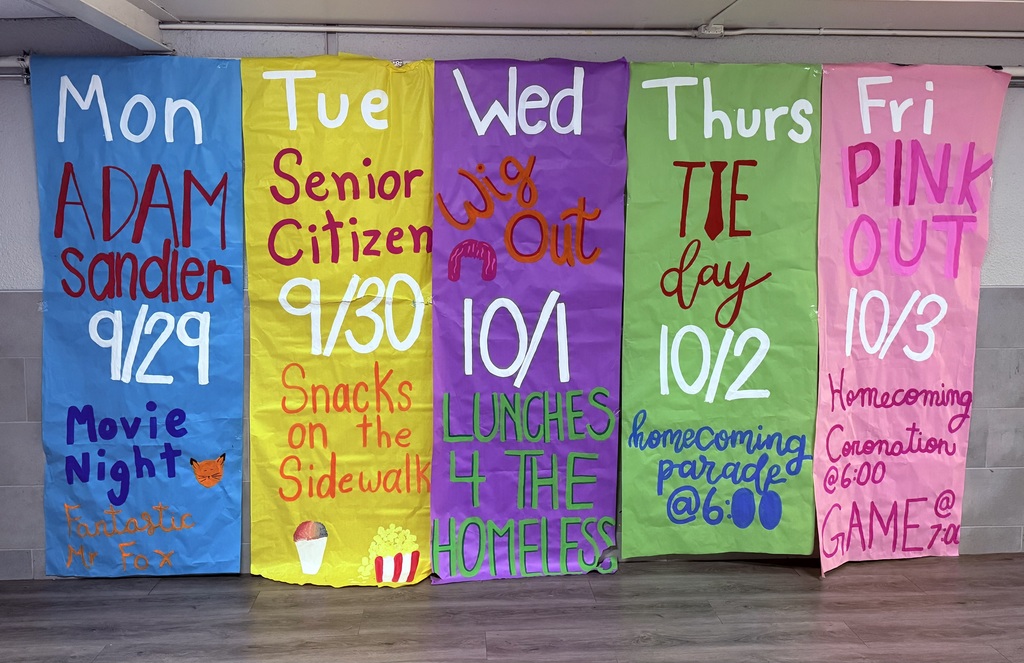 Mon
ADAM
sandler
9/29
Movie
Night
Fantastic
Mr Fox
Tue
Senior
Citizen
9/30
Snacks
on the
Sidewalk
Wed
Wig
Out
10/1
LUNCHES
4 THE
HOMELESS
Thurs
TIE
day
10/2
homecoming
parade
@6:00
Fri
PINK
OUT
10/3
Homecoming
Coronation
@6:00
GAME @